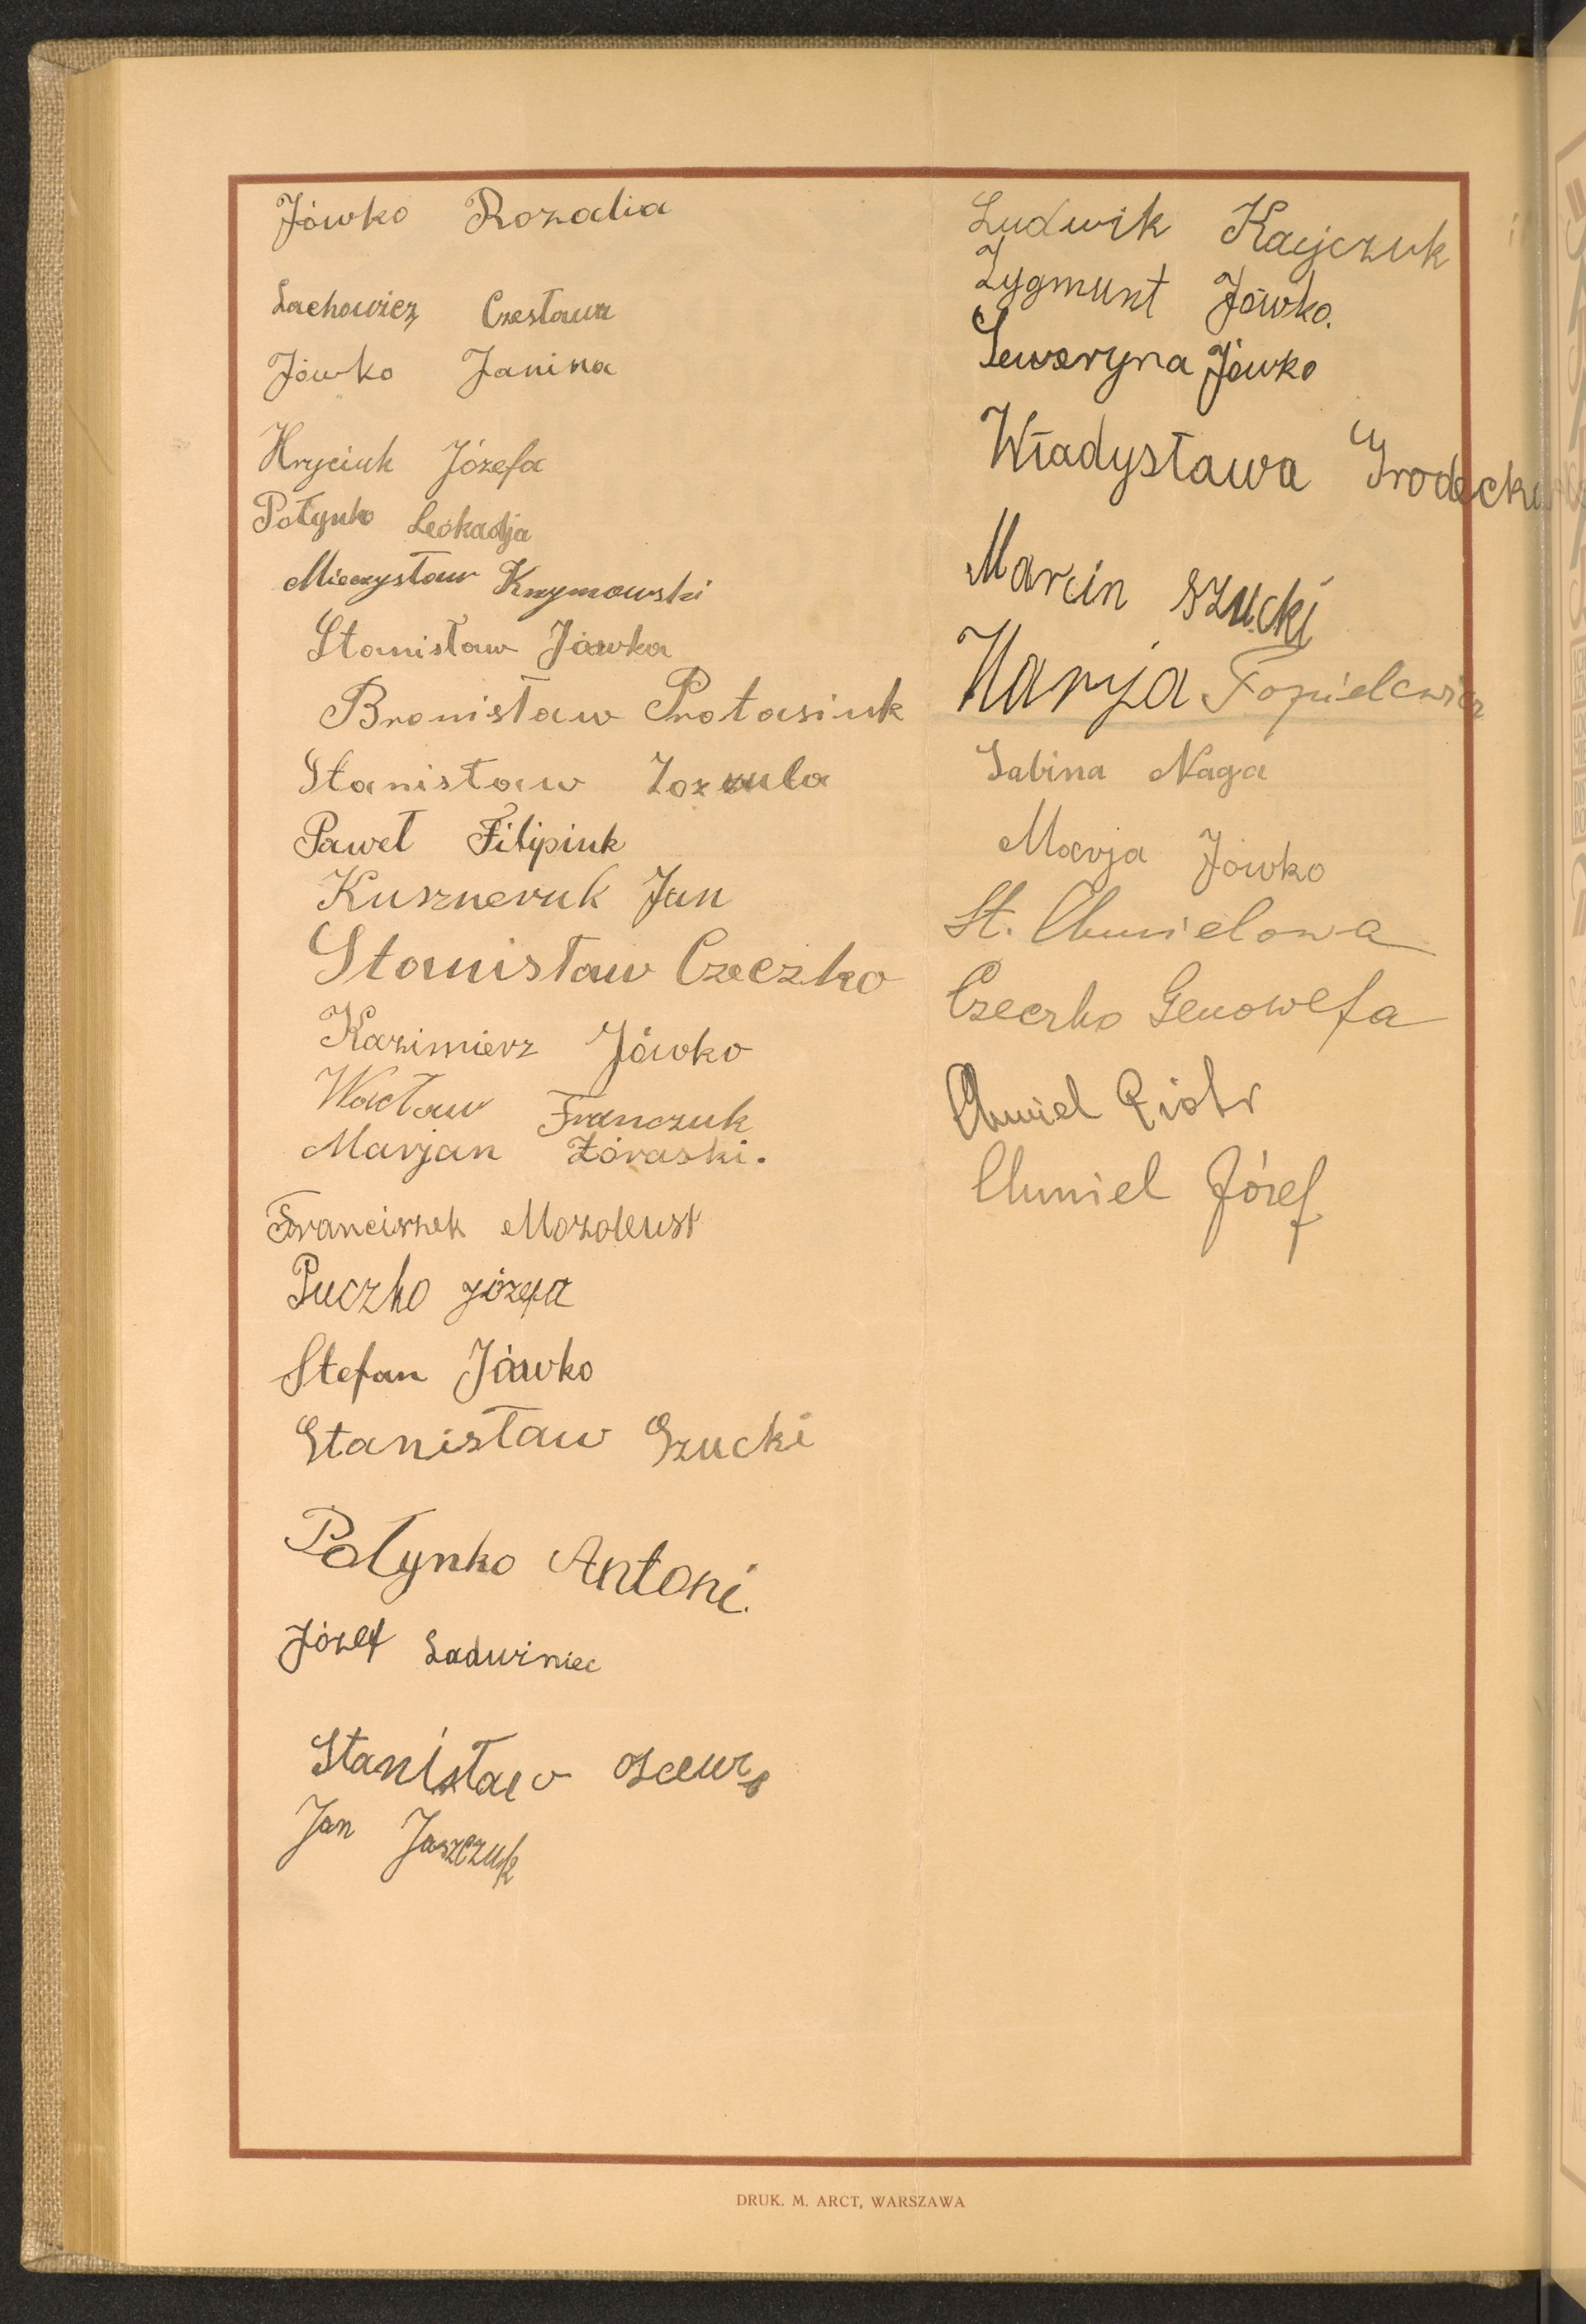 Jówko Rozalia
Lachowicz Czesława
Jówko Janina
Hryciuk Józefa
Połynko Leokadja
Mieczysław Krzymowski
Stanisław Jówko
Bronisław Protasiuk
Stanisław Zozula
Paweł Filipiuk
Kuszneruk Jan
Stanisław Czeczko
Kazimierz Jówko
Wacław Franczuk
Marjan Żóraski.
Franciszek
Puczko Józefa
Stefan Jówko
Stanisław Szucki
Połynko Antoni.
Józef Ladwiniec
Stanisław
Jan Jaszczuk
Ludwik Kajczuk
Zygmunt Jówko.
Seweryna Jówko
Władysława Grodecka
Marcin Szucki
Marja Topielewicz
Sabina Naga
Marja Jówko
St. Chmielowa
Czeczko Genowefa
Chmiel Piotr
Chmiel Józef
DRUK. M. ARCT, WARSZAWA